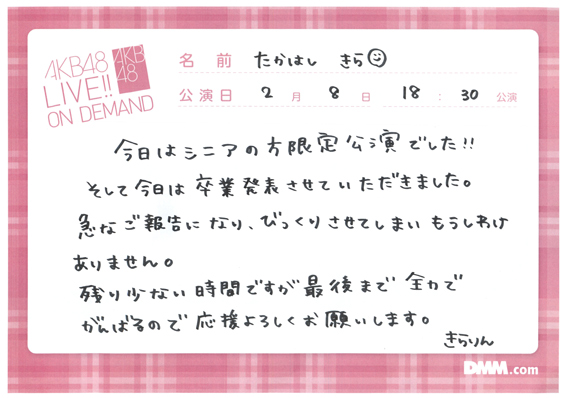 AKB48
LIVE!!
ON DEMAND
AKB
48
名 前 たかはし きら
公演日 2 月 8 日 18 : 30 公演
今日はシニアの方限定公演でした!!
そして今日は卒業発表させていただきました。
急なご報告になり、びっくりさせてしまい もうしわけ
ありません。
残り少ない時間ですが最後まで 全力で
がんばるので応援よろしくお願いします。
きらりん
DMM.com